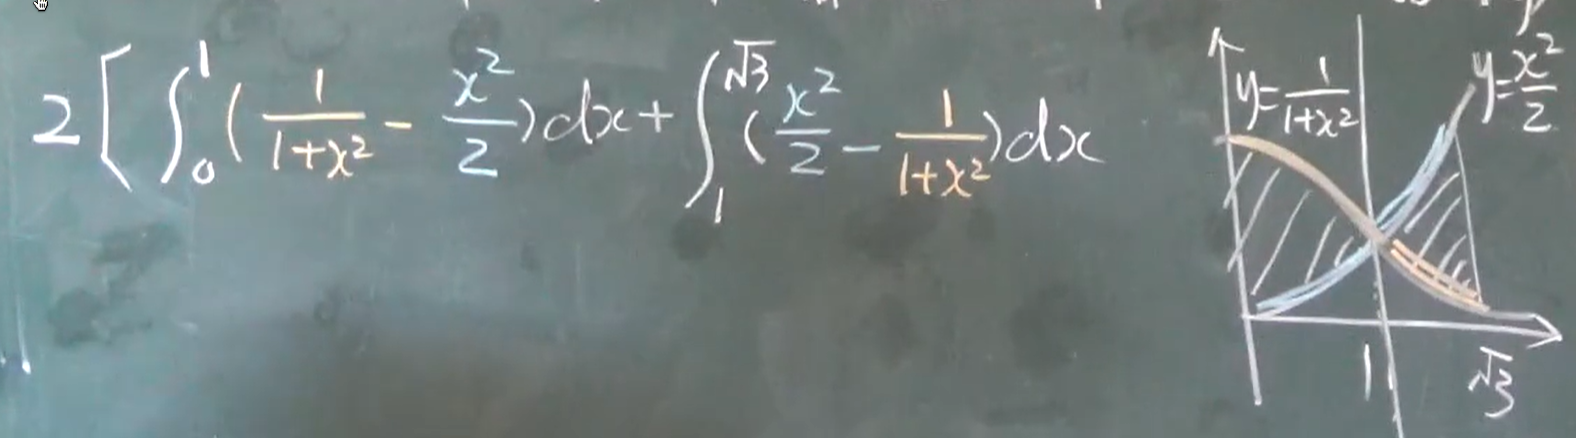 2[∫₀¹(1/(1+x²) - x²/2)dx + ∫₁^√3(x²/2 - 1/(1+x²))dx
y=1/(1+x²)
y=x²/2
1
√3